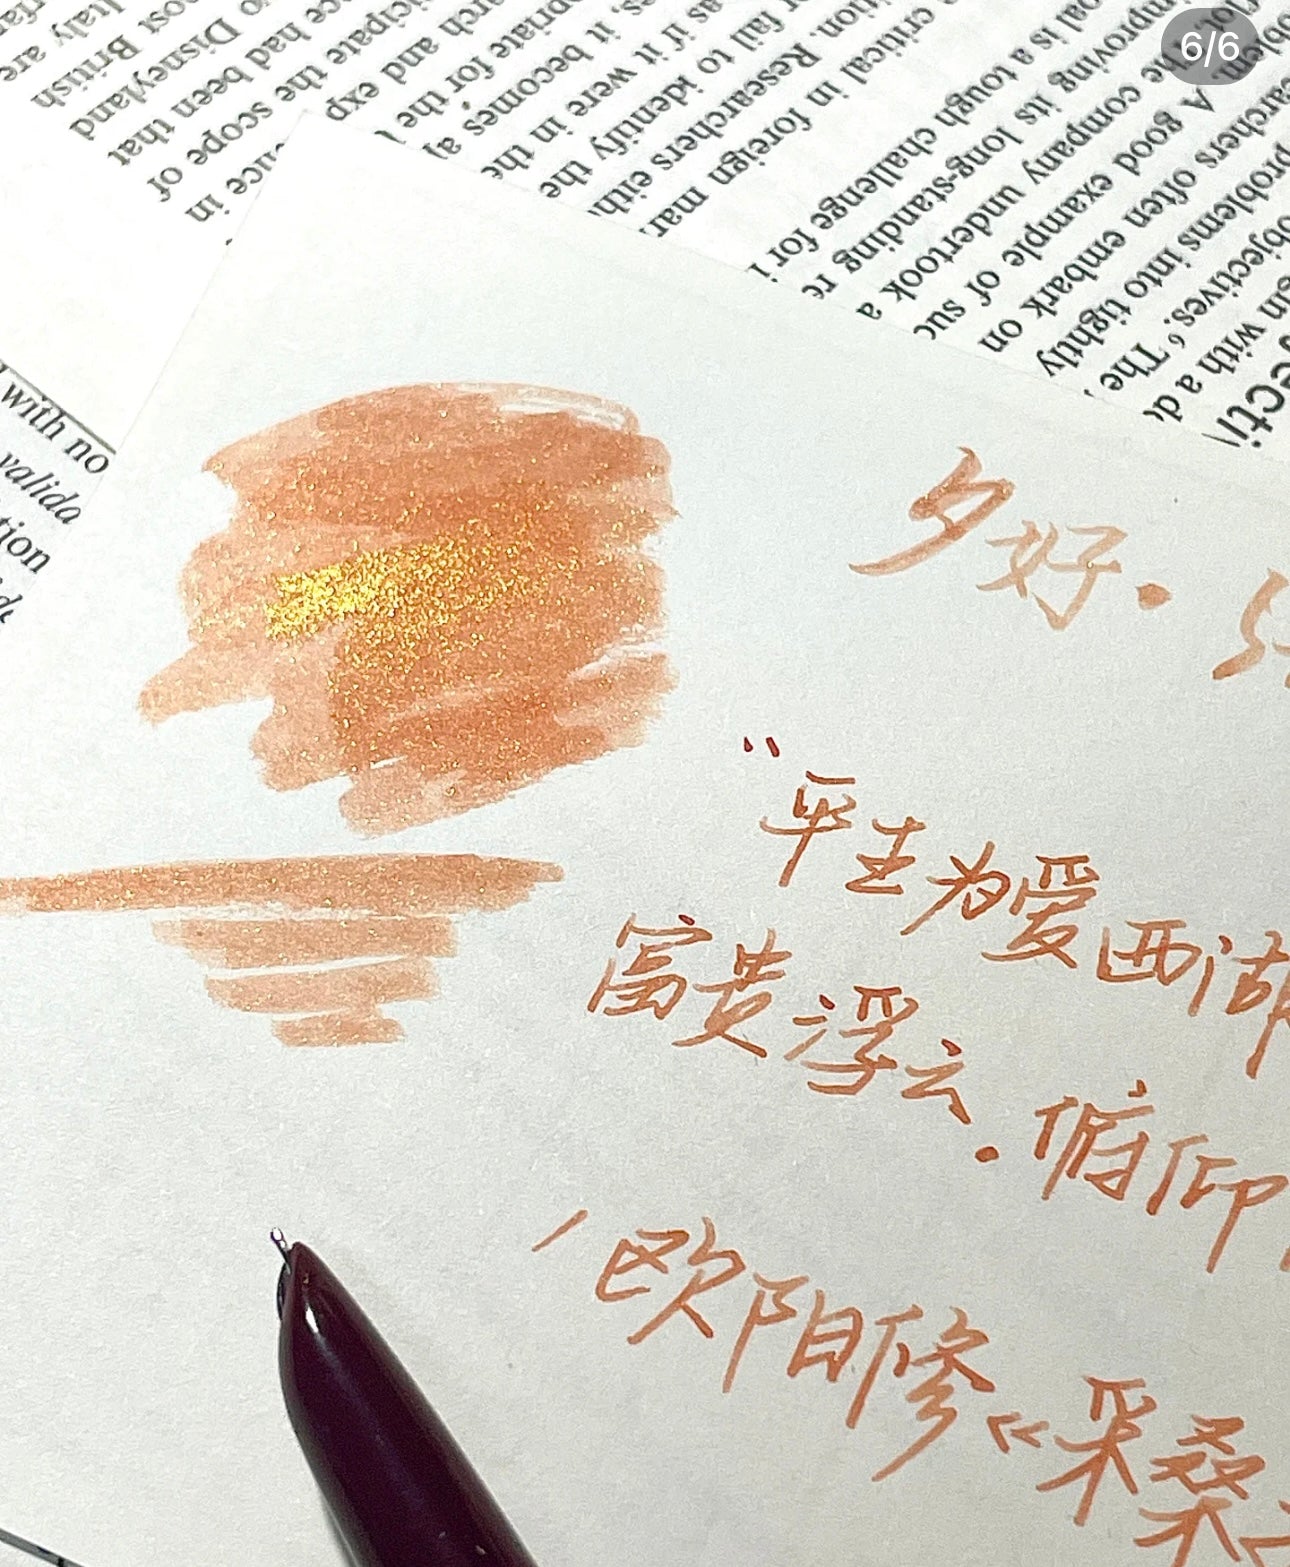 6/6
Italy are
ost British
o Disneyland
ce had been that
cipate the scope of
arch and exp
priate for the
s, it becomes a
as if it were in the
r fail to identify the
tion. Researchers eith
critical in foreign mar
oal is a tough challenge for
mproving its long-standing re
The company undertook a
oblem. A good example of suc
archers often embark on
problems into tightly
objectives.⁶ The
gin with a
ecti
with no
valida
tion
夕好.
"平生为爱西湖
富贵浮云.俯仰
欧阳修《采桑